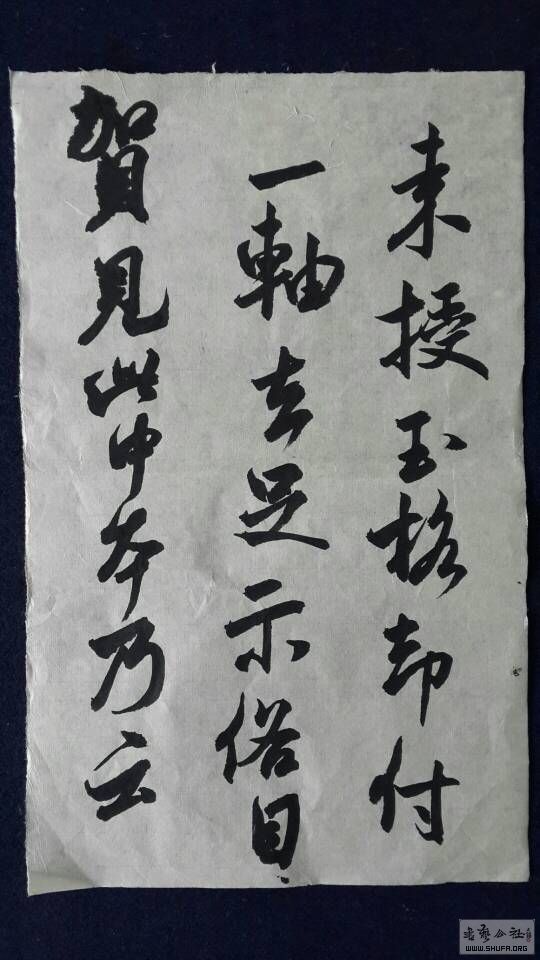 来授玉格却付
一軸去足示俗目
賀見此中本乃云
书艺公社
WWW.SHUFA.ORG